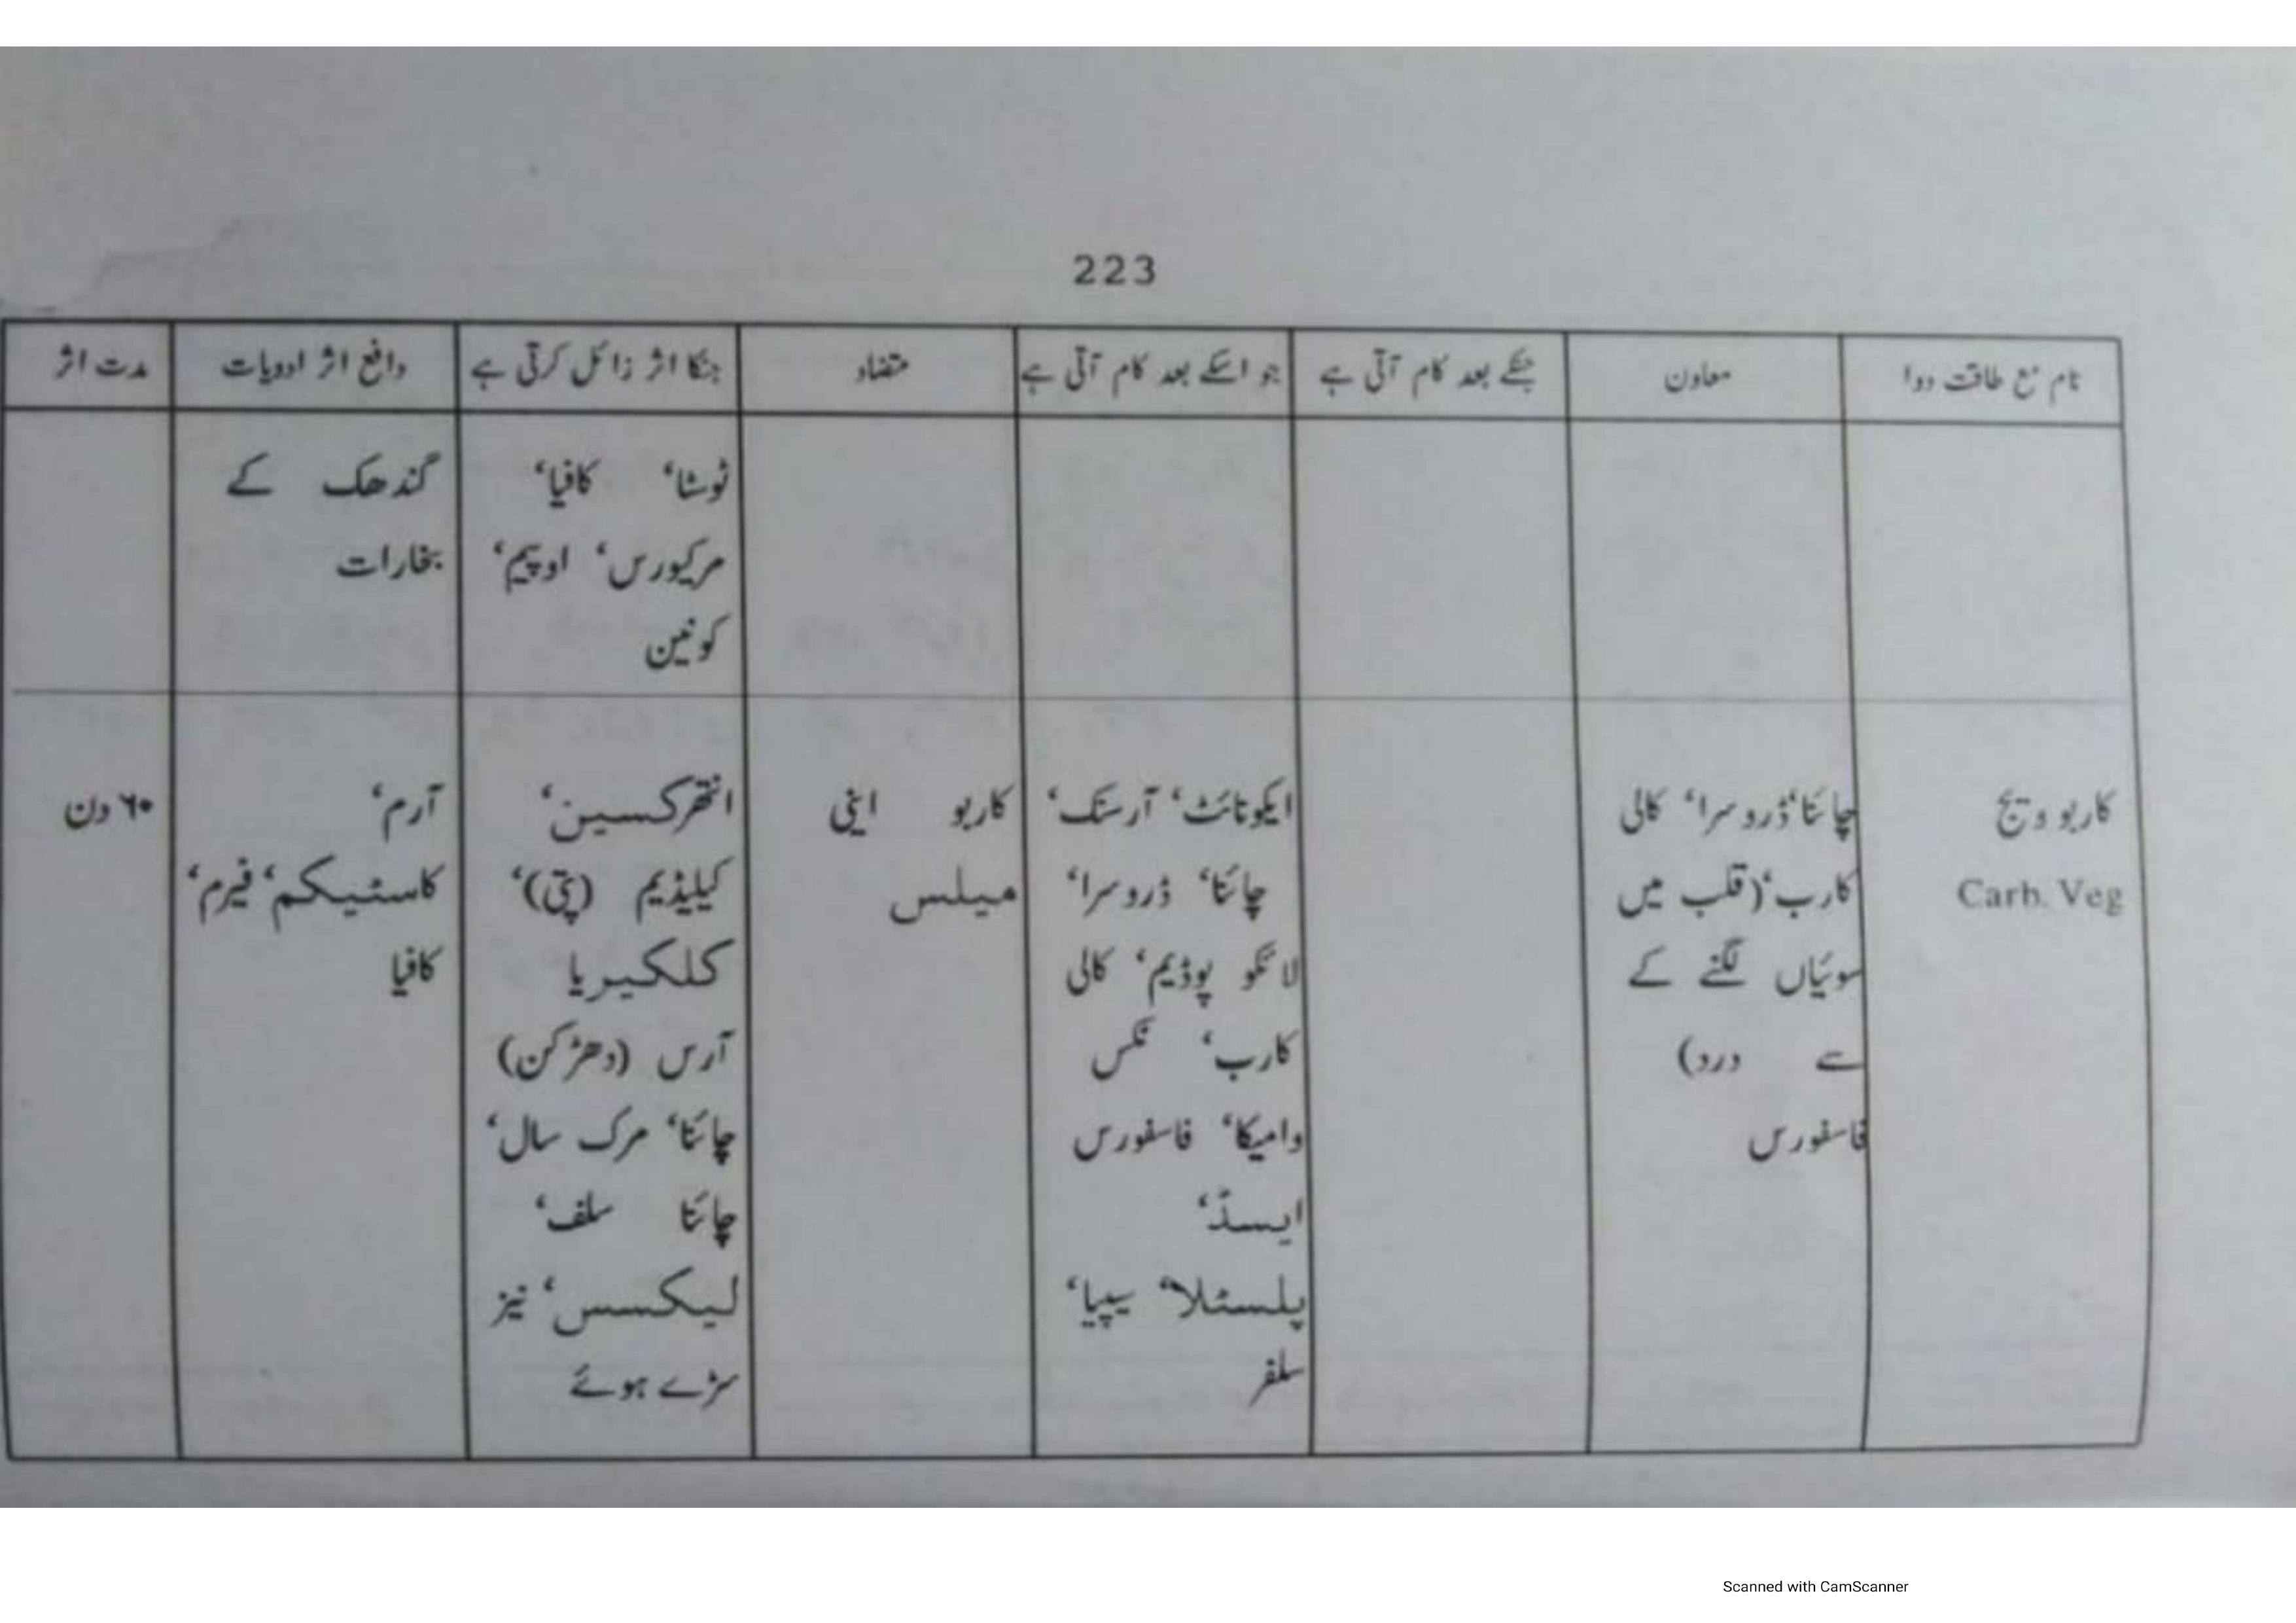 223
نام مع طاقت دوا
معاون
جنکے بعد کام آتی ہے
جو اسکے بعد کام آتی ہے
متضاد
جنکا اثر زائل کرتی ہے
دافع اثر ادویات
مدت اثر
ٹوشا، کافیا،
مرکیورس، اوپیم،
کونین
گندھک کے
بخارات
کاربو ویج
Carb. Veg
چائنا، ڈروسرا، کالی
کارب، (قلب میں
سوئیاں لگنے کے
سے درد)
فاسفورس
ایکونائٹ، آرسنک،
چائنا، ڈروسرا،
لائکو پوڈیم، کالی
کارب، نکس
وامیکا، فاسفورس
ایسڈ،
پلسٹلا، سیپیا،
سلفر
کاربو اینی
میلس
انتھرکسین،
کیلیڈیم (پتی)،
کلکیریا
آرس (دھڑکن)
چائنا، مرک سال،
چائنا سلف،
لیکسس، نیز
سڑے ہوئے
آرم،
کاسٹیکم، فیرم،
کافیا
۶۰ دن
Scanned with CamScanner